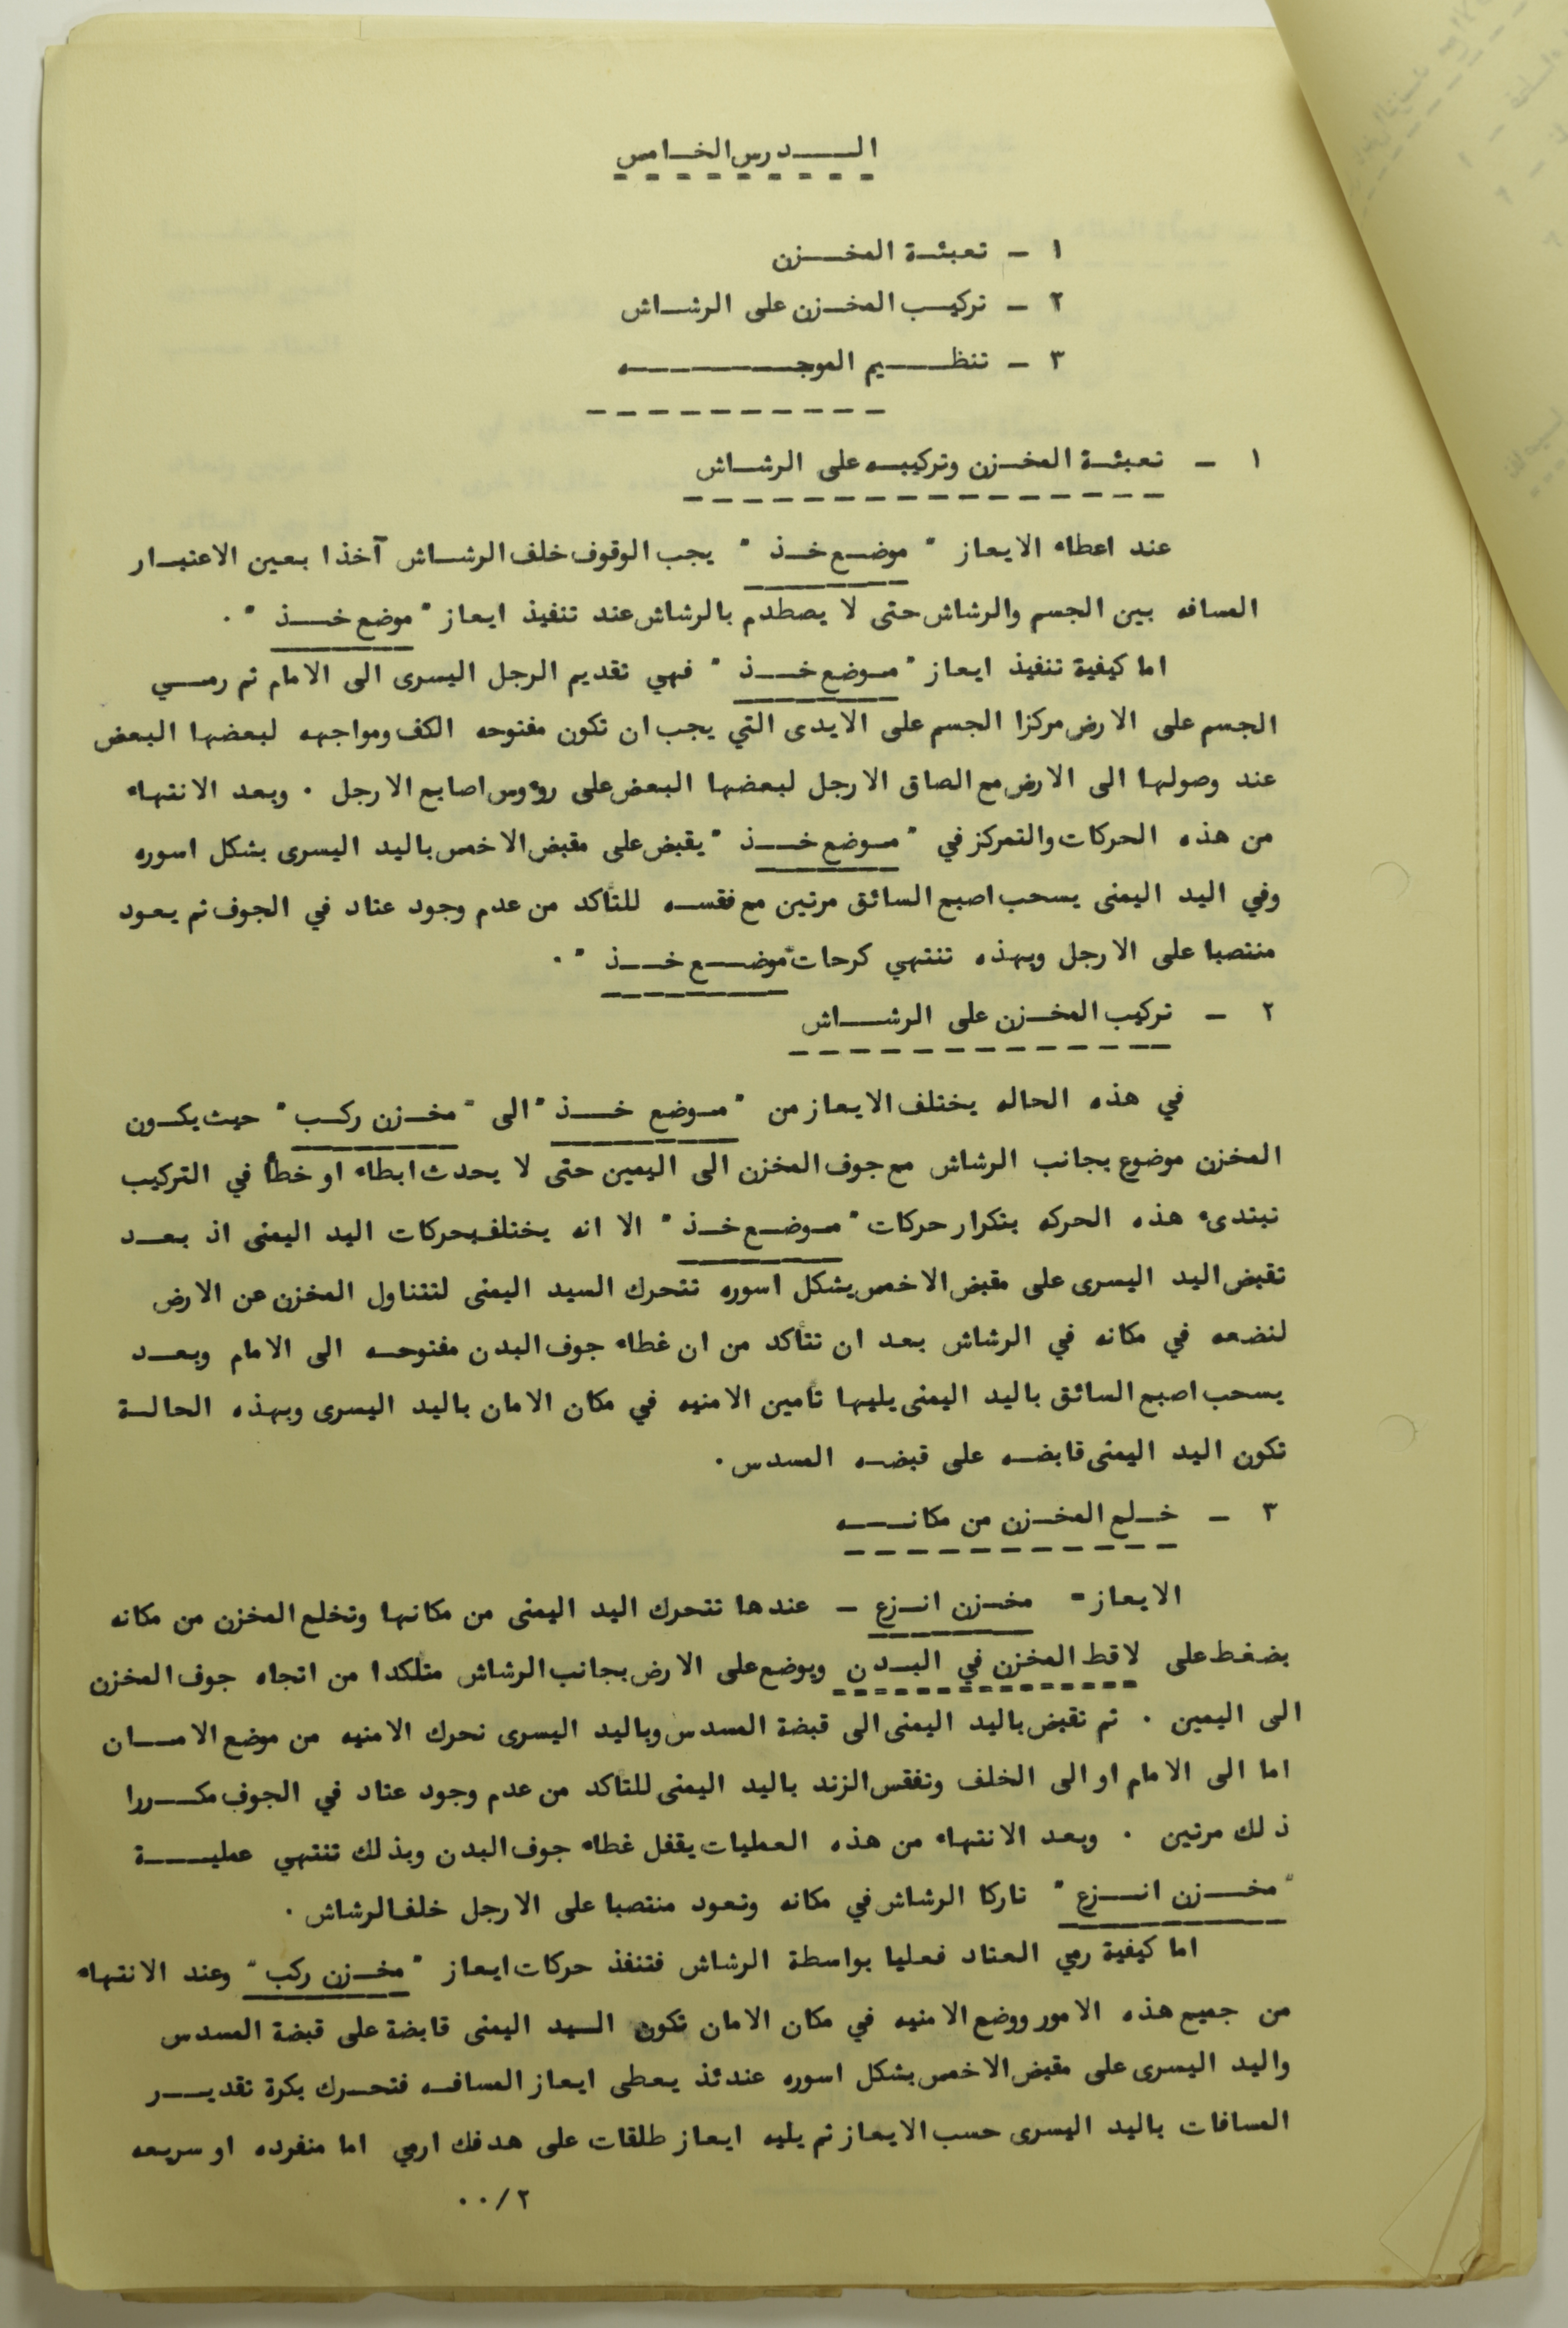 الـــدرس الخـامس
١ - تعبئـة المخــزن
٢ - تركيـب المخـزن على الرشـاش
٣ - تنظـــيم الموجــــــه
١ - تعبئـة المخـزن وتركيبـه على الرشـاش
عند اعطاء الايعاز " موضـع خـذ " يجب الوقوف خلف الرشـاش آخذا بعين الاعتبـار
المسافه بين الجسم والرشاش حتى لا يصطدم بالرشاش عند تنفيذ ايعاز " موضع خــذ " .
اما كيفية تنفيذ ايعاز " مـوضع خــذ " فهي تقديم الرجل اليسرى الى الامام ثم رمــي
الجسم على الارض مركزا الجسم على الايدى التي يجب ان تكون مفتوحه الكف ومواجهه لبعضها البعض
عند وصولها الى الارض مع الصاق الارجل لبعضها البعض على روءوس اصابع الارجل . وبعد الانتهاء
من هذه الحركات والتمركز في " مـوضع خــذ " يقبض على مقبض الاخمص باليد اليسرى بشكل اسوره
وفي اليد اليمنى يسحب اصبع السائق مرتين مع فقسـه للتأكد من عدم وجود عتاد في الجوف ثم يعـود
منتصبا على الارجل وبهذه تنتهي كرحات " موضــع خــذ " .
٢ - تركيب المخـزن على الرشــاش
في هذه الحاله يختلف الايعاز من " مـوضع خــذ " الى " مخـزن ركـب " حيث يكـون
المخزن موضوع بجانب الرشاش مع جوف المخزن الى اليمين حتى لا يحدث ابطاء او خطأ في التركيب
تبتدىء هذه الحركه بتكرار حركات " مـوضـع خـذ " الا انه يختلف بحركات اليد اليمنى اذ بعــد
تقبض اليد اليسرى على مقبض الاخمص بشكل اسوره تتحرك السيد اليمنى لتتناول المخزن عن الارض
لنضعه في مكانه في الرشاش بعد ان تتأكد من ان غطاء جوف البدن مفتوحـه الى الامام وبعــد
يسحب اصبع السائق باليد اليمنى يليها تأمين الامنيه في مكان الامان باليد اليسرى وبهذه الحالـة
تكون اليد اليمنى قابضـه على قبضـه المسدس .
٣ - خـلع المخـزن من مكانــه
الايعاز - مخـزن انـزع - عندها تتحرك اليد اليمنى من مكانها وتخلع المخزن من مكانه
بضغط على لاقط المخزن في البـدن ويوضع على الارض بجانب الرشاش متأكدا من اتجاه جوف المخزن
الى اليمين . ثم نقبض باليد اليمنى الى قبضة المسدس وباليد اليسرى نحرك الامنيه من موضع الامــان
اما الى الامام او الى الخلف وتفقس الزند باليد اليمنى للتأكد من عدم وجود عتاد في الجوف مكــررا
ذلك مرتين . وبعد الانتهاء من هذه العمليات يقفل غطاء جوف البدن وبذلك تنتهي عمليــة
" مخــزن انــزع " تاركا الرشاش في مكانه وتعود منتصبا على الارجل خلف الرشاش .
اما كيفية رمي العتاد فعليا بواسطة الرشاش فتنفذ حركات ايعاز " مخـزن ركب " وعند الانتهاء
من جميع هذه الامور ووضع الامنيه في مكان الامان تكون السيد اليمنى قابضة على قبضة المسدس
واليد اليسرى على مقبض الاخمص بشكل اسوره عندئذ يعطى ايعاز المسافـه فتحـرك بكرة تقديــر
المسافات باليد اليسرى حسب الايعاز ثم يليه ايعاز طلقات على هدفك ارمي اما منفرده او سريعه
٢/٠٠